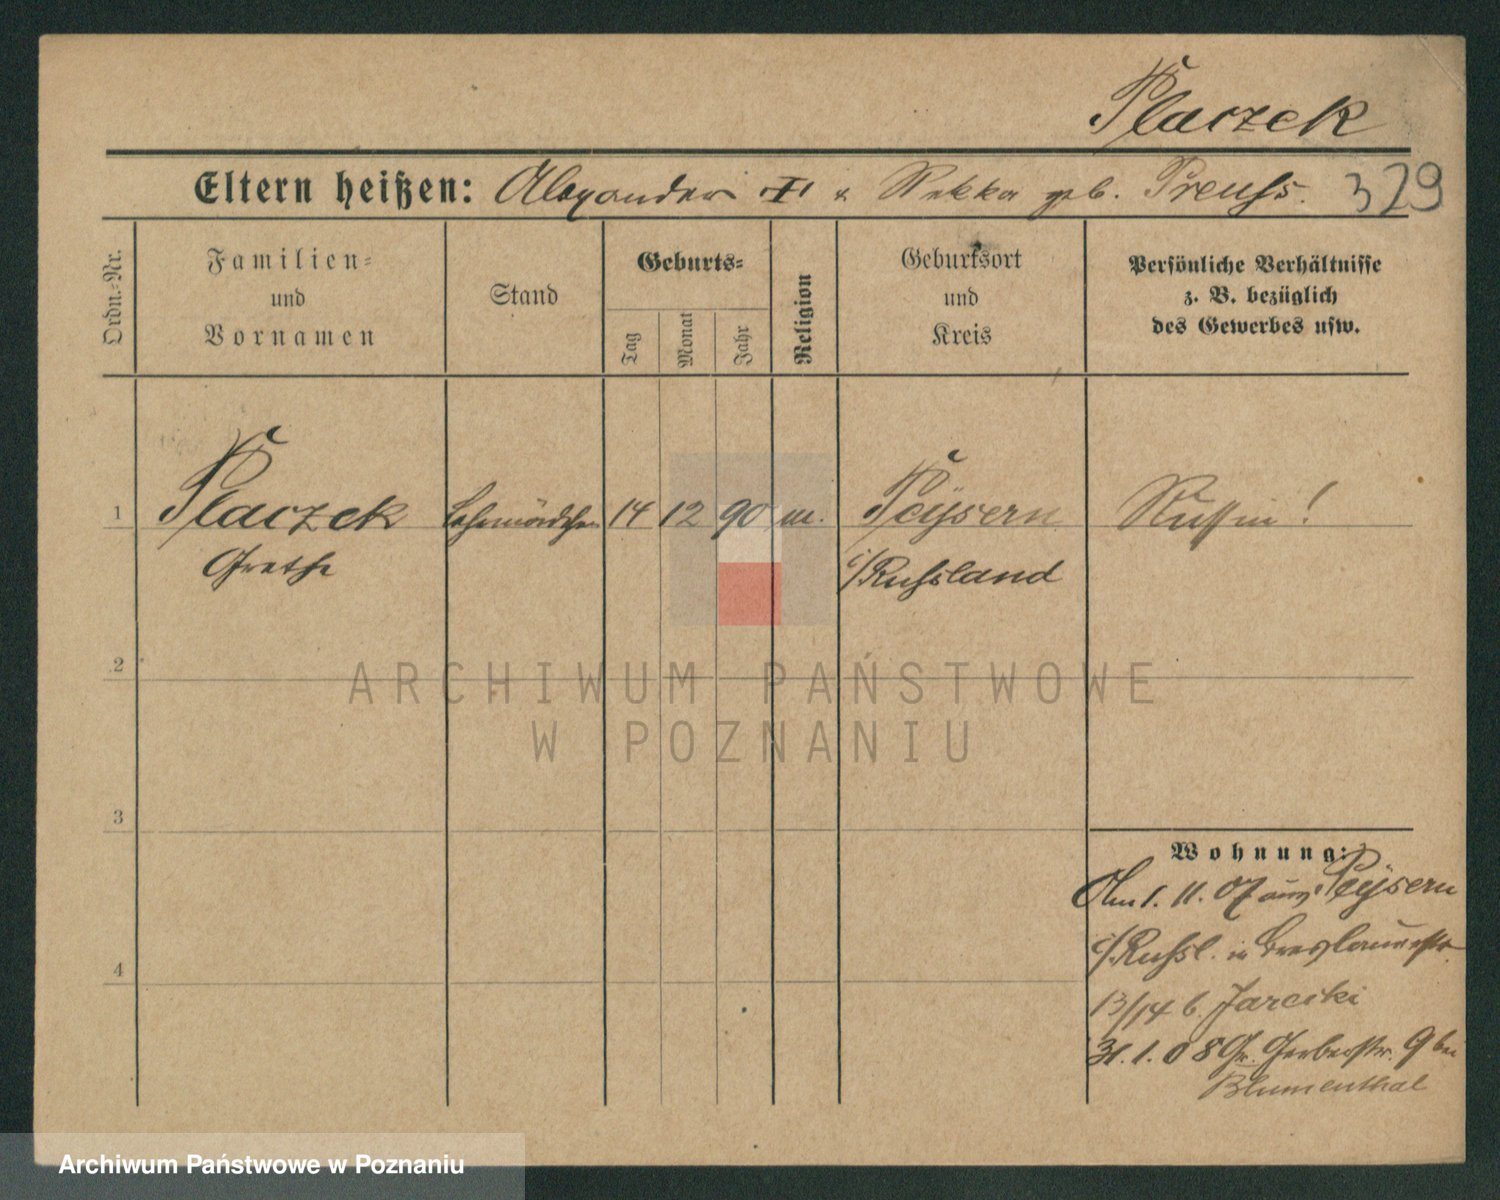 Placzek
Eltern heißen: Alexander † u Rekka geb. Preuß. 329
Ordn.-Nr.
Familien-
und
Vornamen
Stand
Geburts-
Tag
Monat
Jahr
Religion
Geburtsort
und
Kreis
Persönliche Verhältnisse
z. B. bezüglich
des Gewerbes usw.
1 Placzek Lehrmädchen 14 12 90 m. Peÿsern Russin!
Grethe i/Russland
2
3
4
Wohnung:
Am 1. 11. 07 aus Peÿsern
i/Russl. in Breslauerstr.
13/14 b. Jarecki
31. 1. 08 Gr. Gerberstr. 9 bei
Blumenthal
ARCHIWUM PAŃSTWOWE
W POZNANIU
Archiwum Państwowe w Poznaniu